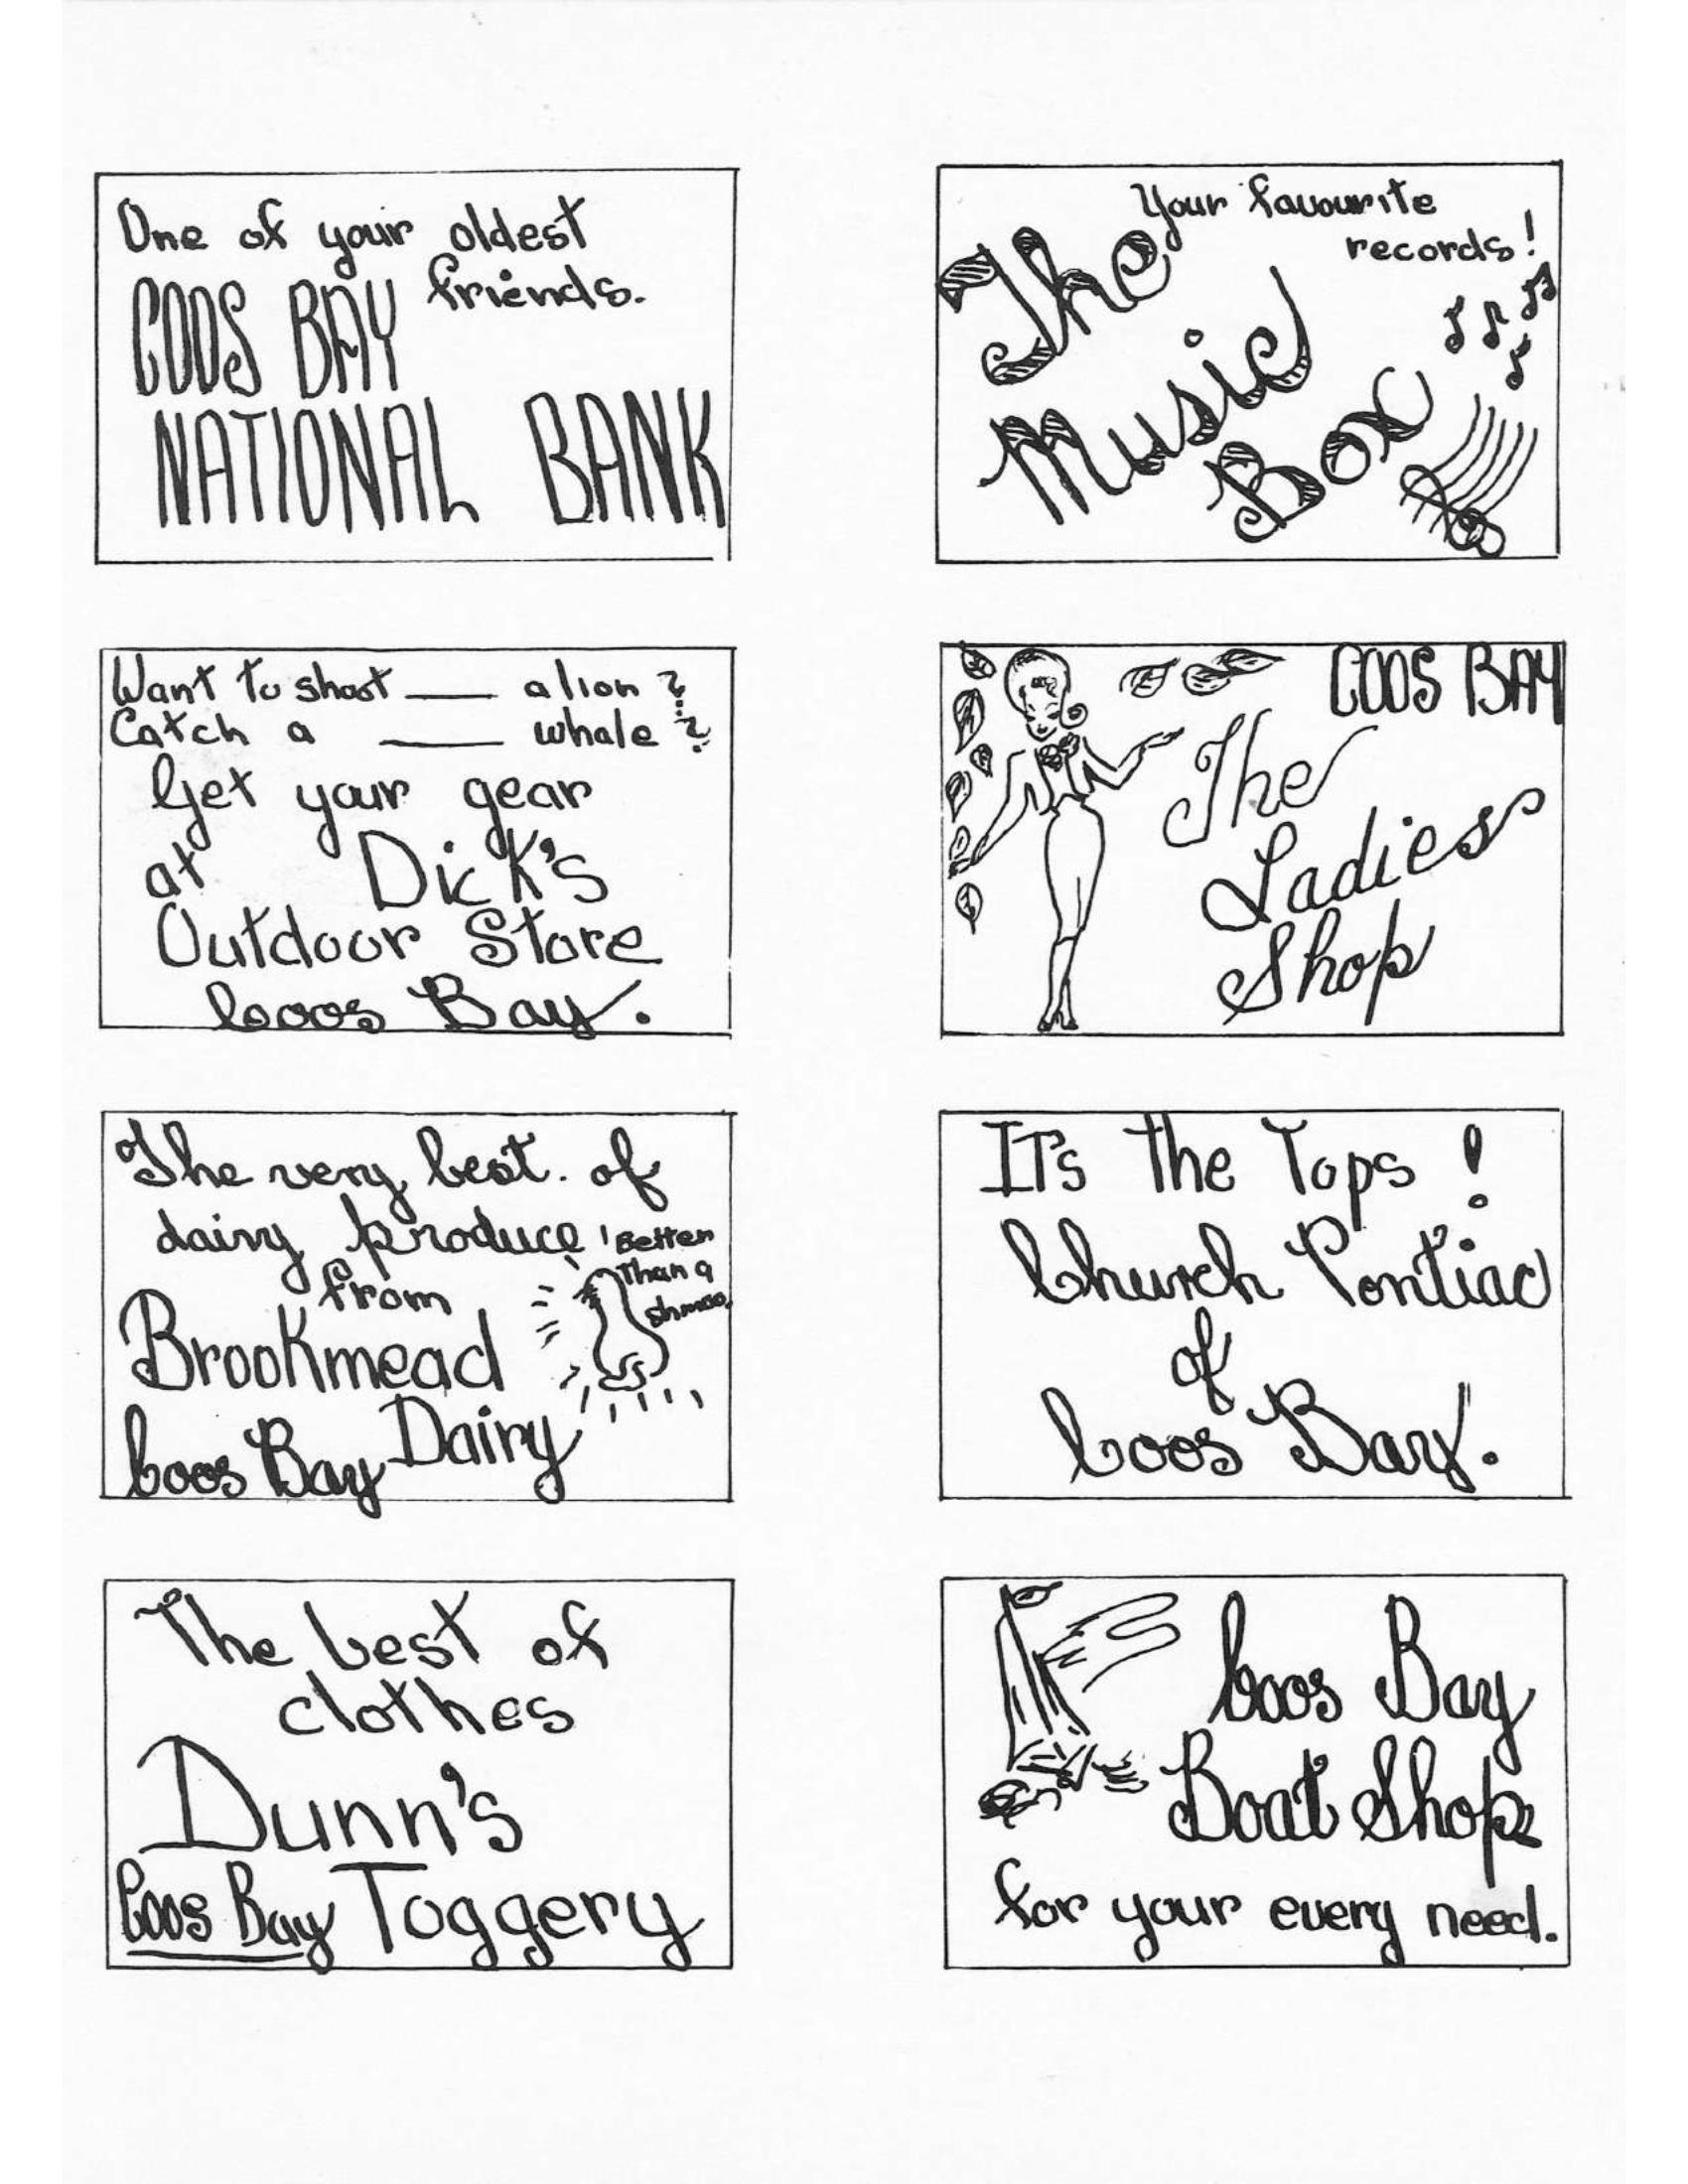 One of your oldest
friends.
COOS BAY
NATIONAL BANK
Your favourite
records!
The
Music
Box
Want to shoot ___ a lion ?
Catch a ___ whale ?
Get your gear
at Dick's
Outdoor Store
Coos Bay.
COOS BAY
The
Ladies
Shop
The very best. of
dairy produce!
from
Better
Than a
shmoo.
Brookmead
Coos Bay Dairy
IT's The Tops !
Church Pontiac
of
Coos Bay.
The best of
clothes
Dunn's
Coos Bay Toggery
Coos Bay
Boat Shop
for your every need.